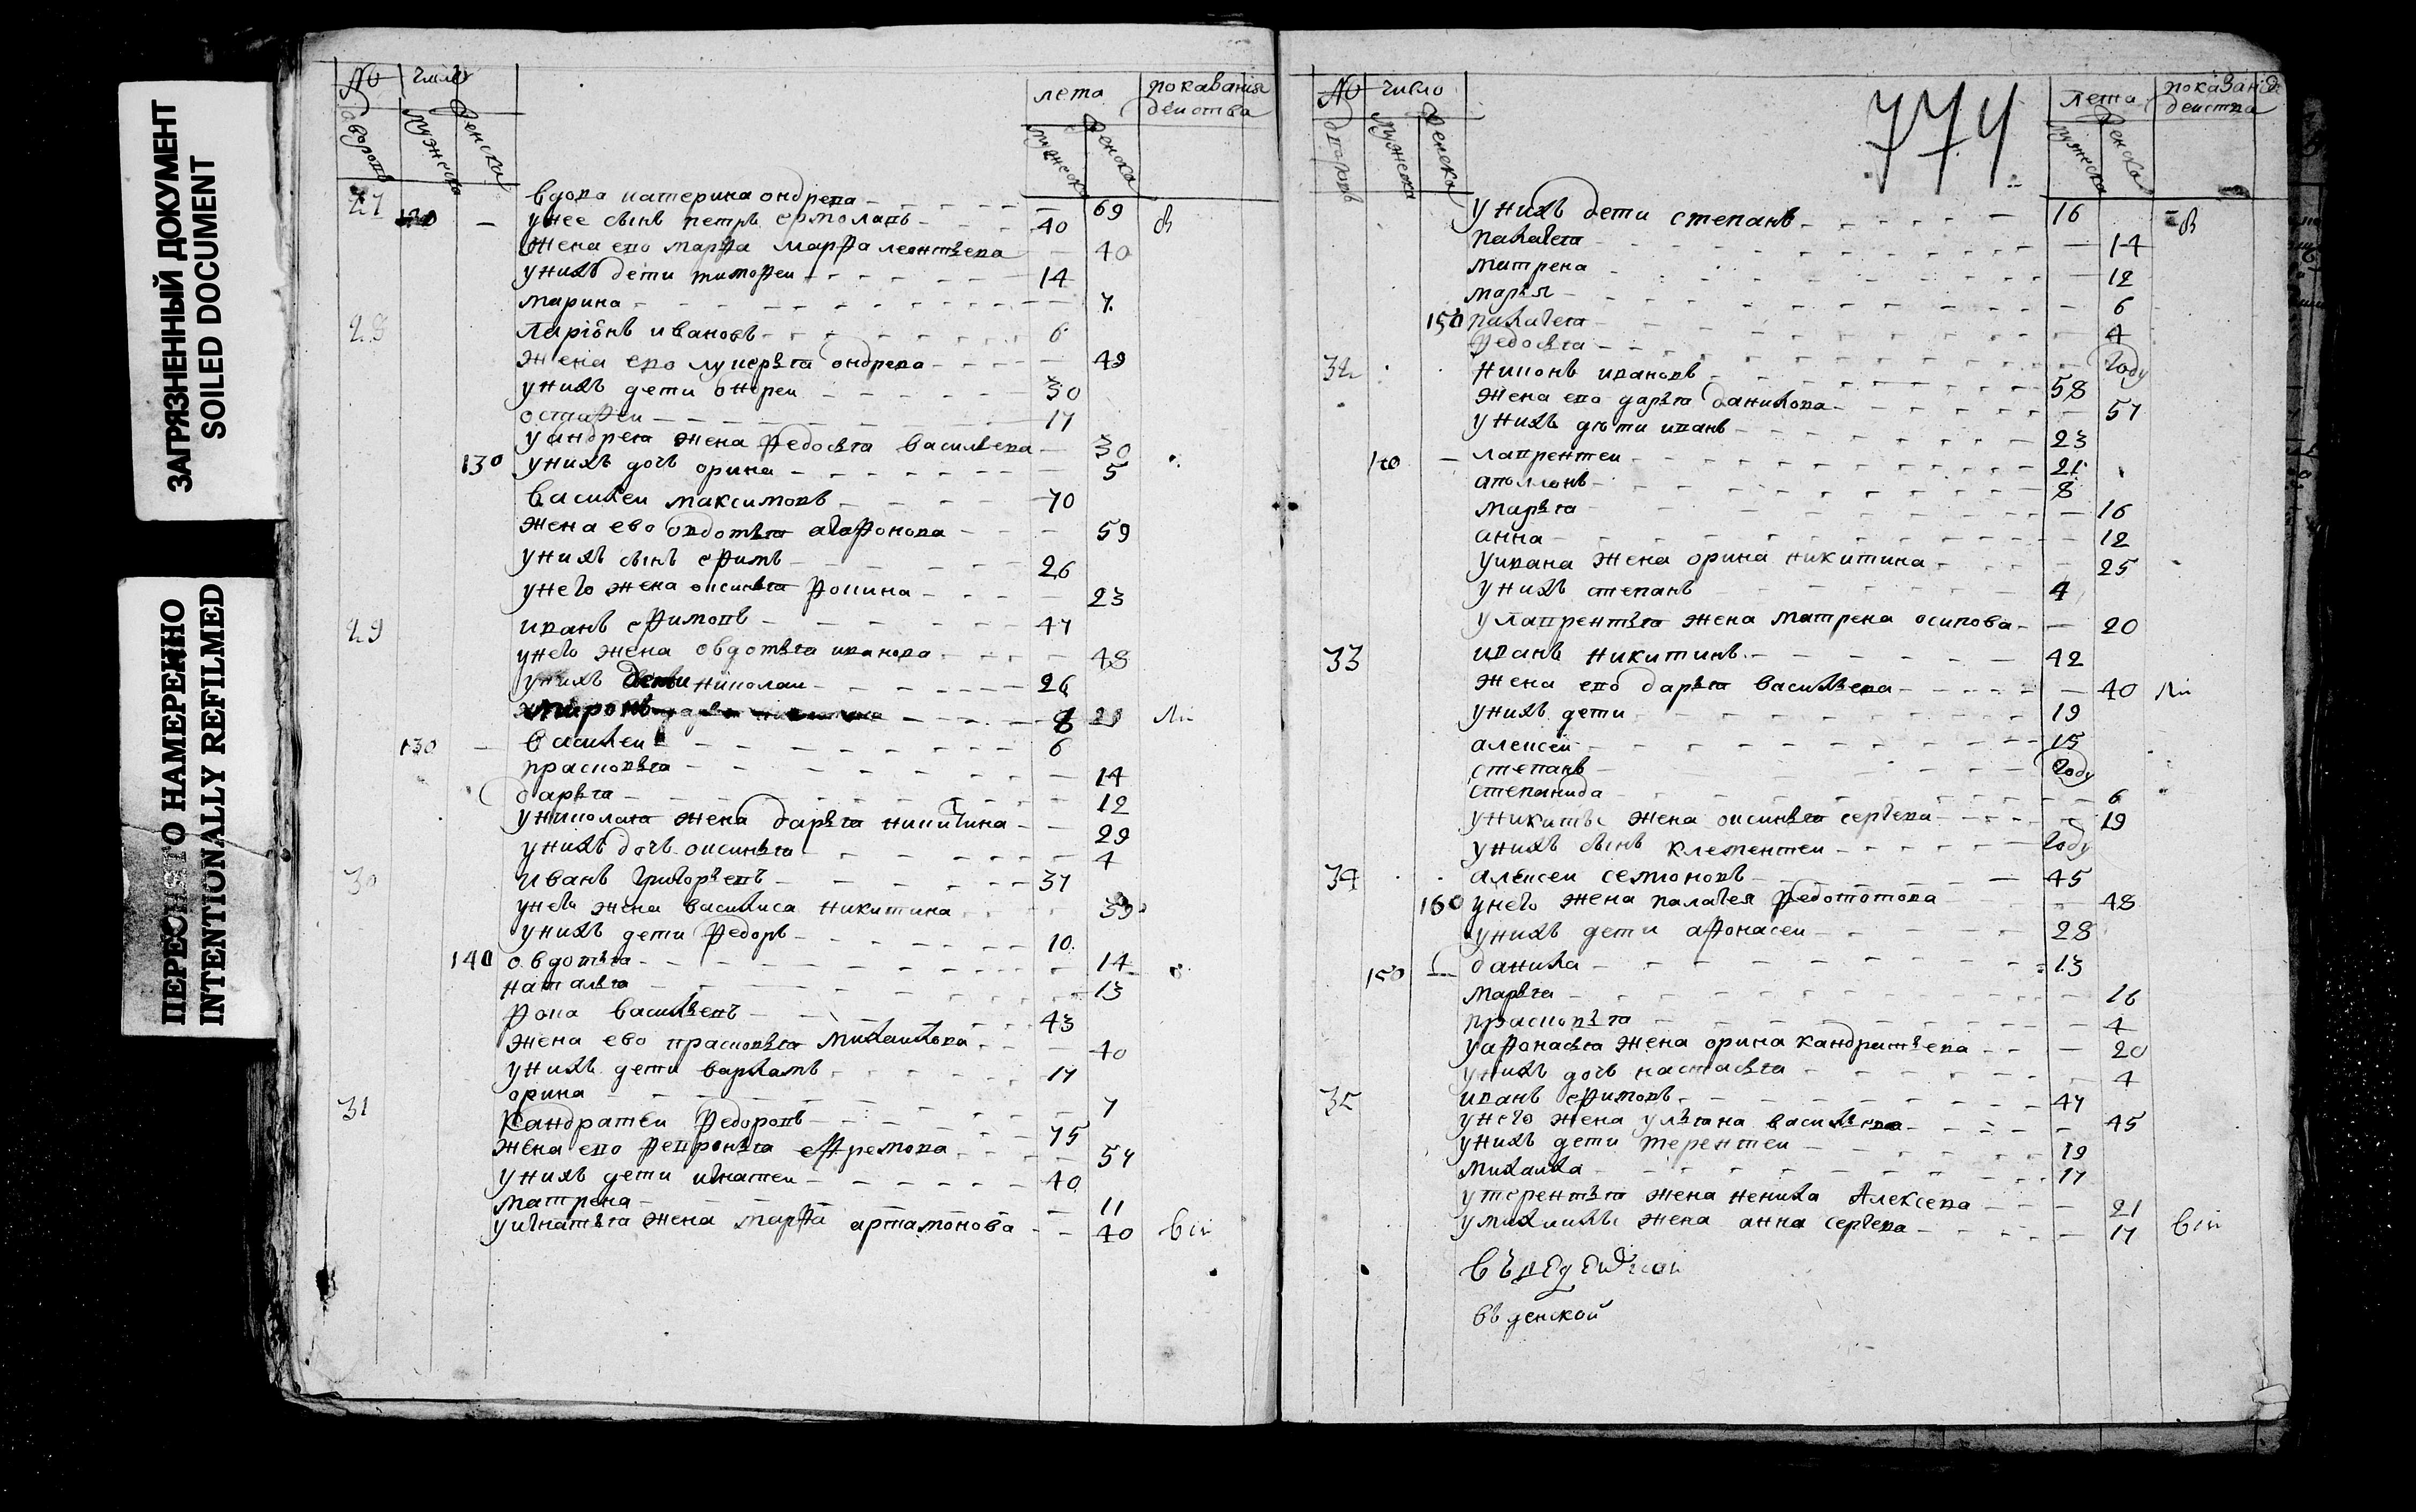 ЗАГРЯЗНЕННЫЙ ДОКУМЕНТ
SOILED DOCUMENT
ПЕРЕСНЯТО НАМЕРЕННО
INTENTIONALLY REFILMED
№ число лета показания
действа
мужеска женска мужеска женска
27 вдова катерина ондрева 69
120 унее сынъ петръ ермолавъ 40
жена ево марфа марфа леонтьева 40
унихъ дети тимофеи 14
марина 7
28 Ларiонъ ивановъ 6
жена ево лукерья ондрева 49
унихъ дети онореи 30
остафеи 17
уандрея жена федосья васильева 30
130 унихъ дочь орина 5
василеи максимовъ 70
жена ево овдотья агафонова 59
унихъ сынъ ефимъ 26
унего жена оксинья фокина 23
29 иванъ ефимовъ 47
унего жена овдотья иванова 48
унихъ дети николаи 26
миронъ 8
130 василеи 6
прасковья 14
дарья 12
униколая жена дарья никитина 29
унихъ дочь оксинья 4
30 иванъ григорьевъ 37
унего жена василиса никитина 39
унихъ дети федоръ 10
140 овдотья 14
наталья 13
фока васильевъ 43
жена ево прасковья михаилова 40
унихъ дети варламъ 17
орина 7
31 кандратеи федоровъ 75
жена ево февронья ефремова 57
унихъ дети игнатеи 40
матрена 11
уигнатья жена марфа артамонова 40
774
№ число лета показания
действа
мужеска женска мужеска женска
унихъ дети степанъ 16
палагея 14
матрена 12
марья 6
150 палагея 4
федосья году
32 никонъ ивановъ 58
жена ево дарья данилова 57
унихъ дети иванъ 23
140 лаврентеи 21
аполлонъ 8
марья 16
анна 12
уивана жена орина никитина 25
унихъ степанъ 4
улаврентья жена матрена осипова 20
33 иванъ никитинъ 42
жена ево дарья васильева 40
унихъ дети 19
алексеи 15
степанъ году
степанида 6
уникиты жена оксинья сергева 19
унихъ сынъ клементеи году
34 алексеи семионовъ 45
160 унего жена палагея федототова 48
унихъ дети афонасеи 28
150 данила 13
марья 16
прасковья 4
уафонасья жена орина кандратьева 20
унихъ дочь настасья 4
35 иванъ ефимовъ 47
унего жена ульяна васильева 45
унихъ дети терентеи 19
михаила 17
утерентья жена ненила Алексева 21
умихаилы жена анна сергева 17
въ денской